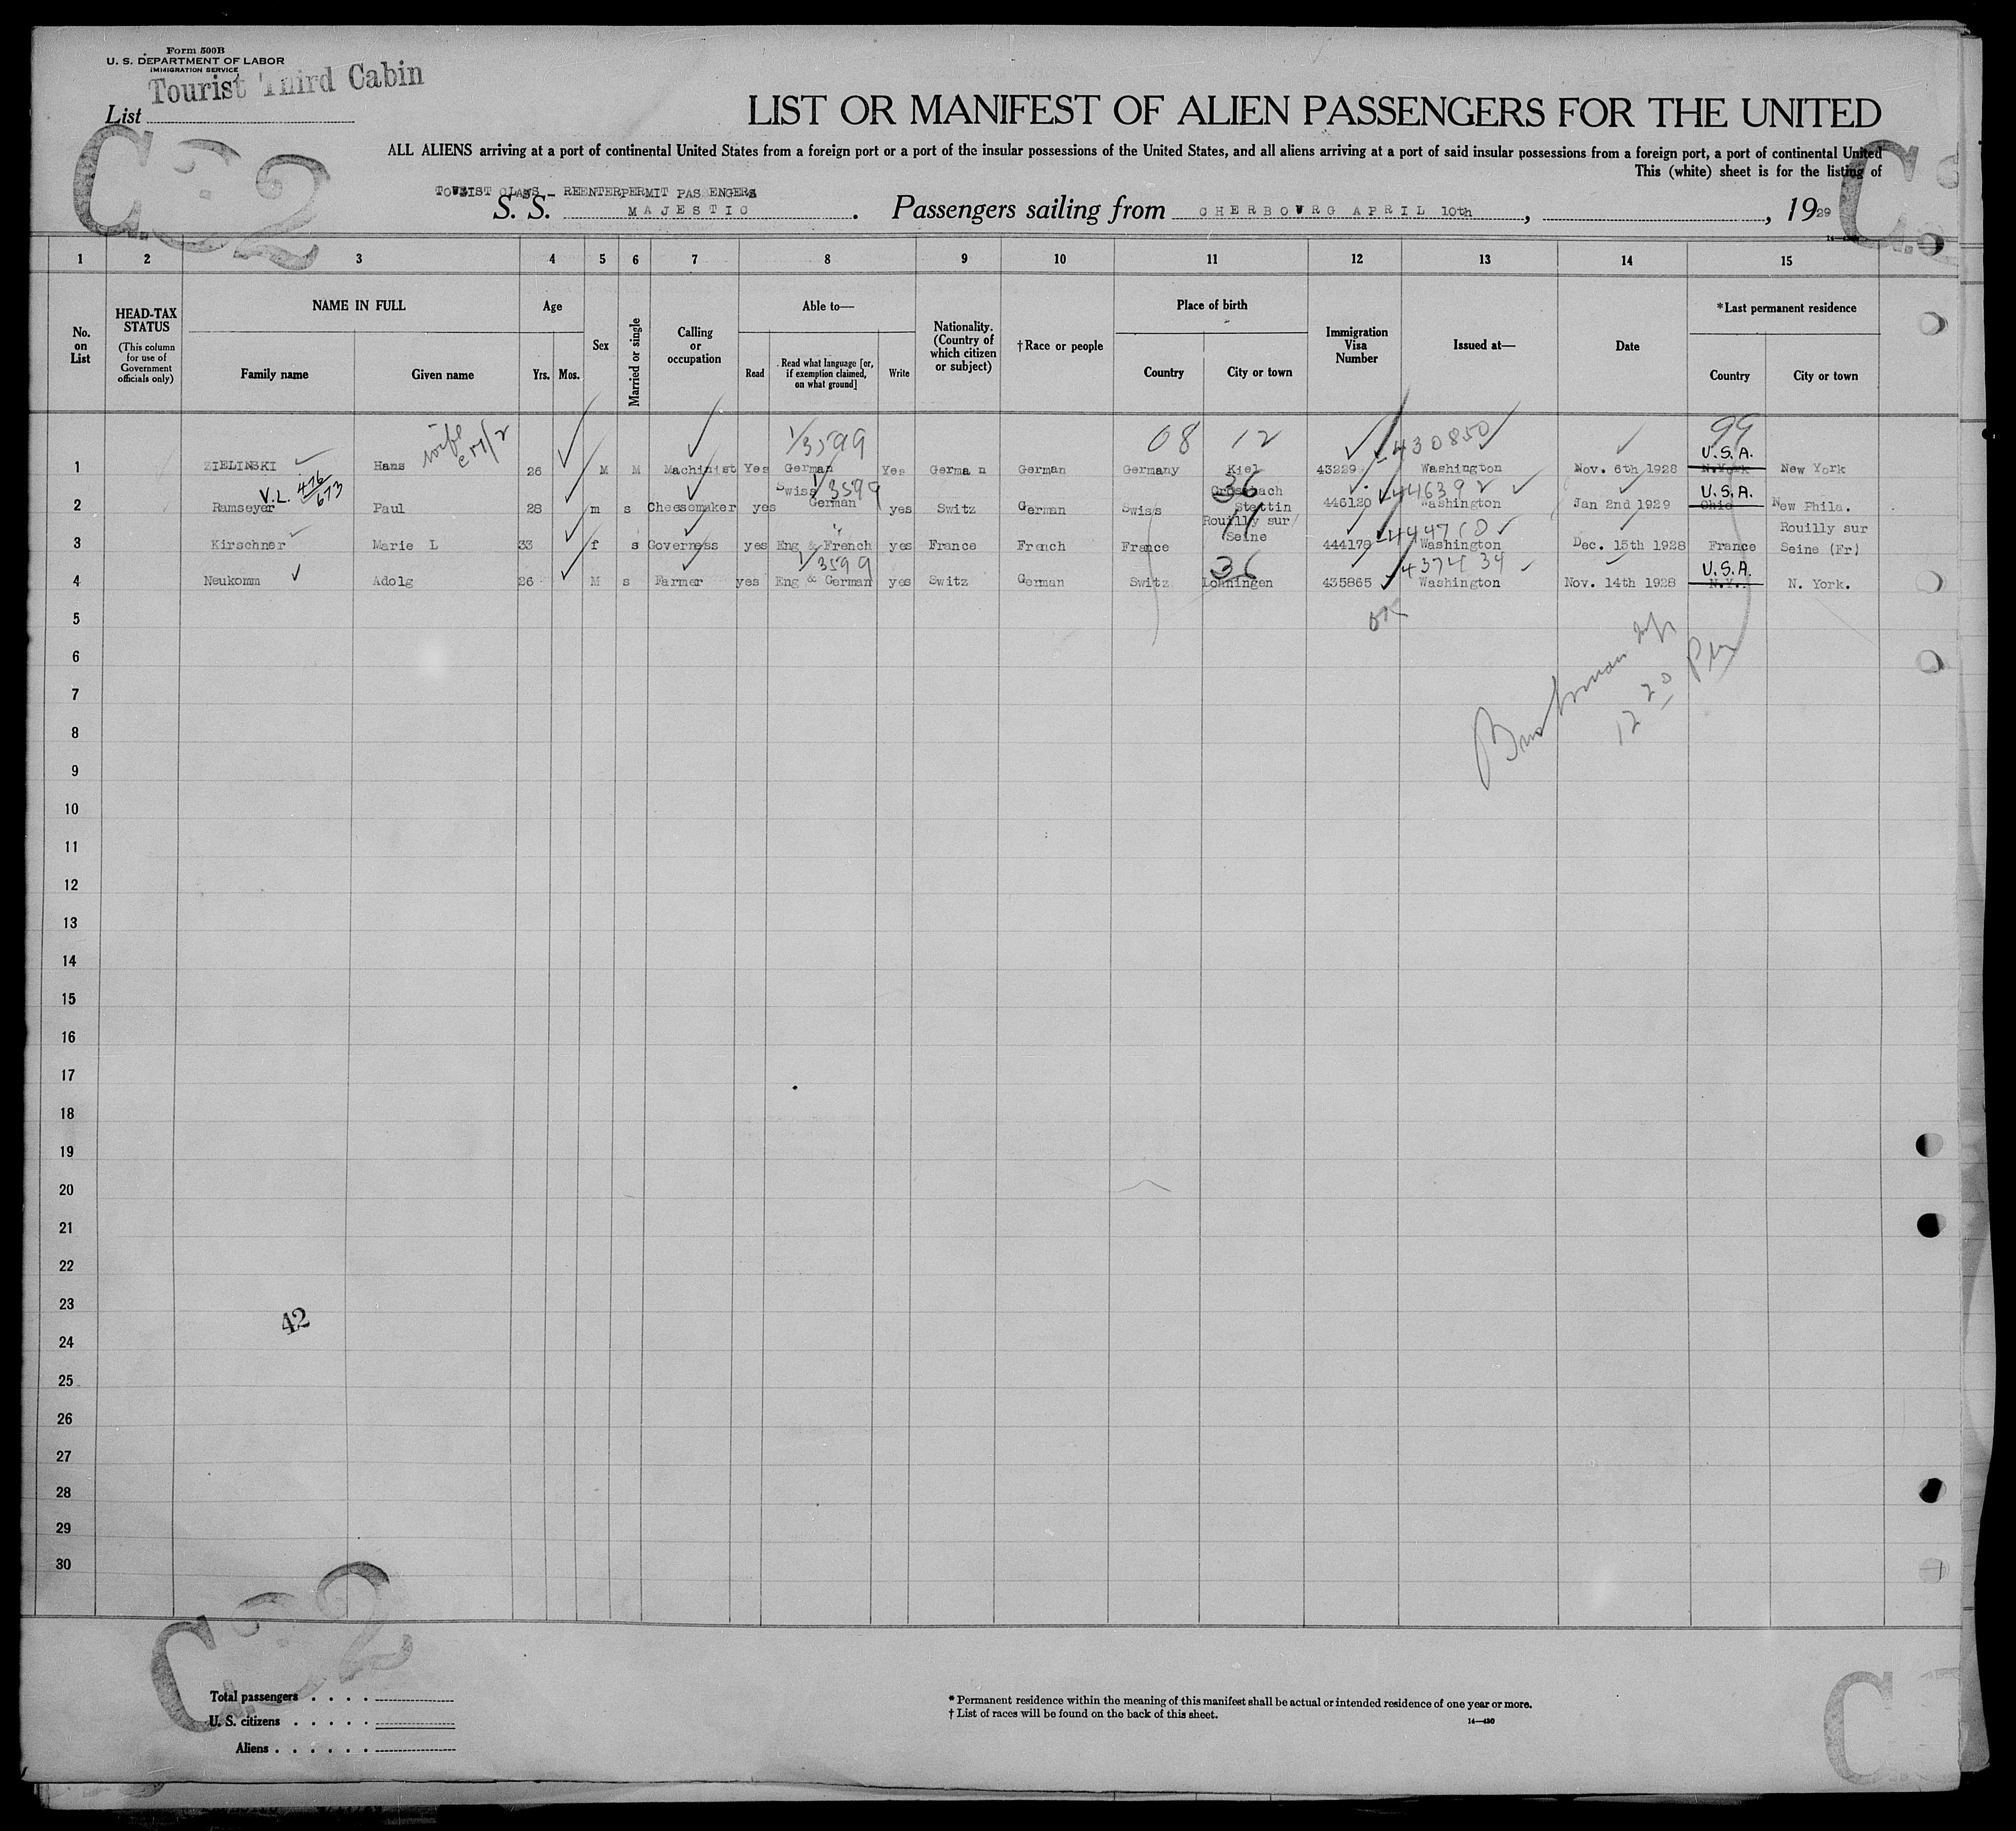 Form 500B
U. S. DEPARTMENT OF LABOR
IMMIGRATION SERVICE
Tourist Third Cabin
List
LIST OR MANIFEST OF ALIEN PASSENGERS FOR THE UNITED
ALL ALIENS arriving at a port of continental United States from a foreign port or a port of the insular possessions of the United States, and all aliens arriving at a port of said insular possessions from a foreign port, a port of continental United
This (white) sheet is for the listing of
TOURIST CLASS - REENTERPERMIT PASSENGERS
S. S. MAJESTIC . Passengers sailing from CHERBOURG APRIL 10th , , 1929
1 2 3 4 5 6 7 8 9 10 11 12 13 14 15
No. on List
HEAD-TAX STATUS
(This column for use of Government officials only)
NAME IN FULL
Family name
Given name
Age
Yrs. Mos.
Sex
Married or single
Calling or occupation
Able to—
Read
Read what language [or, if exemption claimed, on what ground]
Write
Nationality. (Country of which citizen or subject)
†Race or people
Place of birth
Country
City or town
Immigration Visa Number
Issued at—
Date
*Last permanent residence
Country
City or town
wife 1/3599 08 12 430850 99
U.S.A.
1 ZIELINSKI Hans 26 M M Machinist Yes German Yes German German Germany Kiel 43229 Washington Nov. 6th 1928 N.York New York
V.L. 476/673 Swiss 1/3599 36 446392 U.S.A.
2 Ramseyer Paul 28 m s Cheesemaker yes German yes Switz German Swiss Stettin 446120 Washington Jan 2nd 1929 Ohio New Phila.
Rouilly sur Seine 11 444710 Rouilly sur
3 Kirschner Marie L 33 f s Governess yes Eng & French yes France French France 444178 Washington Dec. 15th 1928 France Seine (Fr)
1/3599 36 437434 U.S.A.
4 Neukomm Adolg 26 M s Farmer yes Eng & German yes Switz German Switz Lohningen 435865 Washington Nov. 14th 1928 N.Y. N. York.
OK
5
6
12 20 PM
7
8
9
10
11
12
13
14
15
16
17
18
19
20
21
22
23
42
24
25
26
27
28
29
30
Total passengers
U. S. citizens
Aliens
* Permanent residence within the meaning of this manifest shall be actual or intended residence of one year or more.
† List of races will be found on the back of this sheet.
14—430